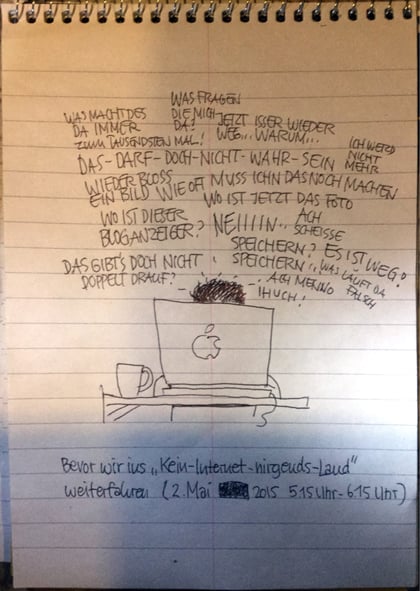 WAS FRAGEN
WAS MACHT DES DIE MICH JETZT ISSER WIEDER
DA IMMER DA? WEG... WARUM...
ZUM TAUSENDSTEN MAL! ICH WERD
NICHT
DAS-DARF-DOCH-NICHT-WAHR-SEIN MEHR
WIEDER BLOSS WIE OFT MUSS ICHN DAS NOCH MACHEN
EIN BILD WO IST JETZT DAS FOTO
WO IST DIESER NEIIIIN.. ACH
BLOGANZEIGER? SCHEISSE
SPEICHERN? ES IST WEG?
DAS GIBT'S DOCH NICHT SPEICHERN.. WAS LÄUFT DA
DOPPELT DRAUF? ACH MENNO FALSCH
!HUCH!
Bevor wir ins „Kein-Internet-nirgends-Land"
weiterfahren (2. Mai 2015 5.15 Uhr-6.15 Uhr)